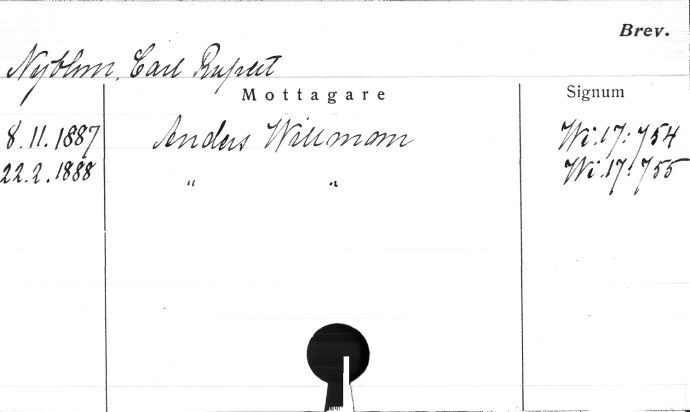 Brev.
Nyblom, Carl Rupert
Mottagare Signum
8.11.1887 Anders Willman Wi:17:754
22.2.1888 " " Wi:17:755